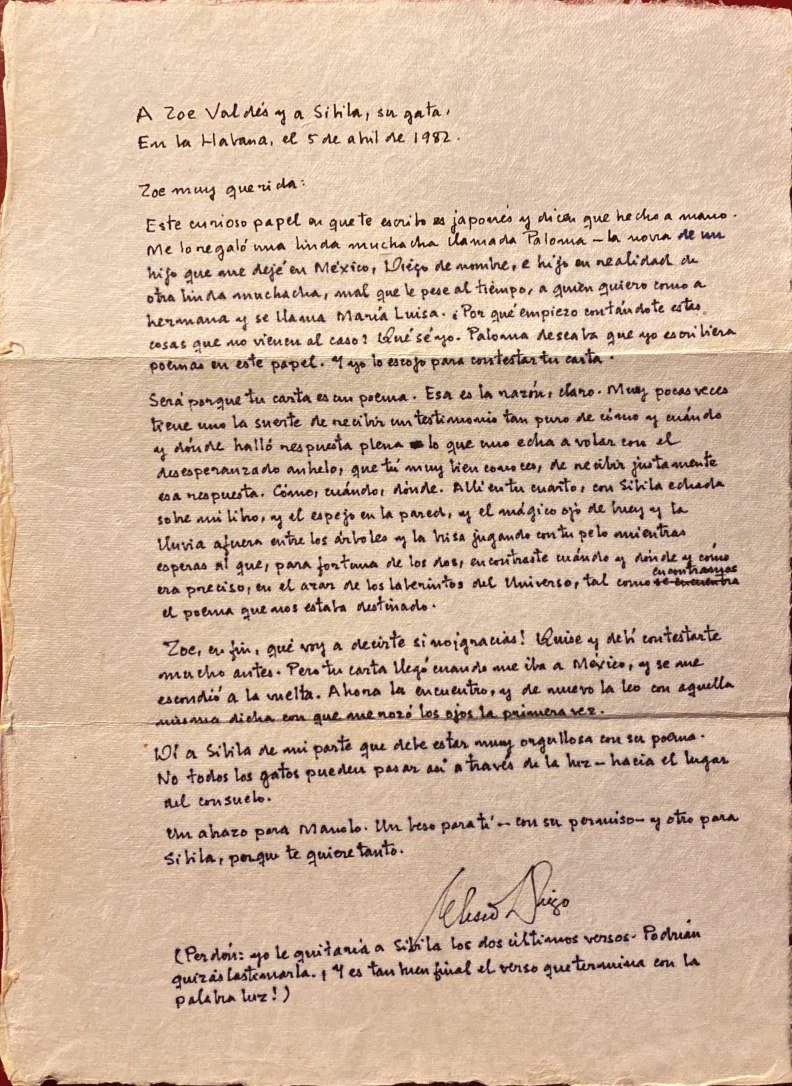 A Zoe Valdés y a Sibila, su gata.
En la Habana, el 5 de abril de 1982.
Zoe muy querida:
Este curioso papel en que te escribo es japonés y dicen que hecho a mano.
Me lo regaló una linda muchacha llamada Paloma – la novia de un
hijo que me dejé en México, Diego de nombre, e hijo en realidad de
otra linda muchacha, mal que le pese al tiempo, a quien quiero como a
hermana y se llama María Luisa. ¿Por qué empiezo contándote estas
cosas que no vienen al caso? Qué sé yo. Paloma deseaba que yo escribiera
poemas en este papel. Y yo lo escojo para contestar tu carta.
Será porque tu carta es un poema. Esa es la razón, claro. Muy pocas veces
tiene uno la suerte de recibir un testimonio tan puro de cómo y cuándo
y dónde halló respuesta plena lo que uno echa a volar con el
desesperanzado anhelo, que tú muy bien conoces, de recibir justamente
esa respuesta. Cómo, cuándo, dónde. Allí en tu cuarto, con Sibila echada
sobre mi libro, y el espejo en la pared, y el mágico ojo de buey y la
lluvia afuera entre los árboles y la brisa jugando con tu pelo mientras
esperas al que, para fortuna de los dos, encontraste cuándo y dónde y cómo
era preciso, en el azar de los laberintos del Universo, tal como encontramos se encuentra
el poema que nos estaba destinado.
Zoe, en fin, qué voy a decirte si no ¡gracias! Quise y debí contestarte
mucho antes. Pero tu carta llegó cuando me iba a México, y se me
escondió a la vuelta. Ahora la encuentro, y de nuevo la leo con aquella
misma dicha con que me rozó los ojos la primera vez.
Di a Sibila de mi parte que debe estar muy orgullosa con su poema.
No todos los gatos pueden pasar así a través de la luz – hacia el lugar
del consuelo.
Un abrazo para Manolo. Un beso para tí – con su permiso – y otro para
Sibila, porque te quiere tanto.
Eliseo Diego
(Perdón: yo le quitaría a Sibila los dos últimos versos. Podrían
quizás lastimarla. ¡Y es tan buen final el verso que termina con la
palabra luz!)